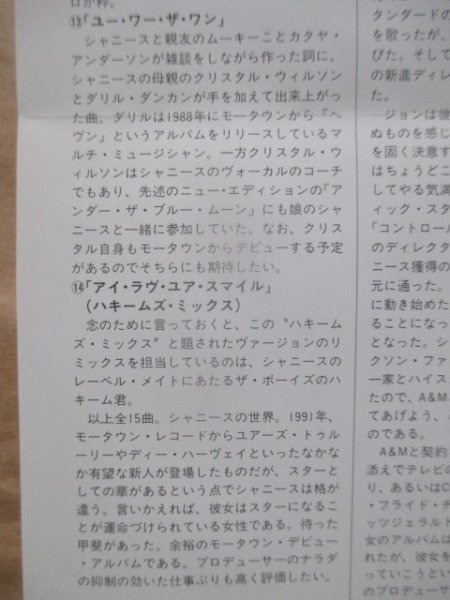 ロが粋。
⑬「ユー・ワー・ザ・ワン」
シャニースと親友のムーキーことカタヤ・
アンダーソンが雑談をしながら作った詞に、
シャニースの母親のクリスタル・ウィルソン
とダリル・ダンカンが手を加えて出来上がっ
た曲。ダリルは1988年にモータウンから「ヘ
ヴン」というアルバムをリリースしているマ
ルチ・ミュージシャン。一方クリスタル・ウ
ィルソンはシャニースのヴォーカルのコーチ
でもあり、先述のニュー・エディションの「ア
ンダー・ザ・ブルー・ムーン」にも娘のシャ
ニースと一緒に参加していた。なお、クリス
タル自身もモータウンからデビューする予定
があるのでそちらにも期待したい。
⑭「アイ・ラヴ・ユア・スマイル」
（ハキームズ・ミックス）
念のために言っておくと、この〝ハキーム
ズ・ミックス〞と題されたヴァージョンのリ
ミックスを担当しているのは、シャニースの
レーベル・メイトにあたるザ・ボーイズのハ
キーム君。
以上全15曲。シャニースの世界。1991年、
モータウン・レコードからユアーズ・トゥル
ーリーやディー・ハーヴェイといったなかな
か有望な新人が登場したものだが、スターと
しての華があるという点でシャニースは格が
違う。言いかえれば、彼女はスターになるこ
とが運命づけられている女性である。待った
甲斐があった。余裕のモータウン・デビュー
・アルバムである。プロデューサーのナラダ
の抑制の効いた仕事ぶりも高く評価したい。
タンダードの
を歌ったが、
びた。そして
の新進ディレ
た。
ジョンは彼
ぬものを感じ
を固く決意す
はちょうどこ
してやる気満
ィック・スタ
「コントロール
のディレクタ
ニース獲得の
元に通った。
に動き始めた
ることになっ
となった。シ
クソン・ファ
一家とハイス
たので、A&M
てあげよう、
のである。
A&Mと契約
添えでテレビの
り、あるいはC
・フライド・チ
ッツジェラルド
女のアルバムは
れたが、彼女を
っていこうとい
のプロデューサ